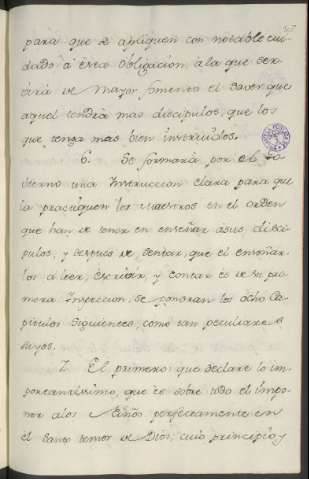 para que se apliquen con notable cui-
dado á ésta obligacion, á la que ser-
virá de mayor fomento el saver que
aquel tendrá mas discipulos, que los
que tenga mas bien instruidos.
6. Se formaria por el Go-
vierno una Instruccion clara para que
la practiquen los Maestros en el orden
que han de tener en enseñar á sus disci-
pulos, y despues de sentar, que el enseñar-
los á leer, escribir, y contar es de su pri-
mera Inspeccion, se pondran los ocho Ca-
pitulos siguientes, como tan peculiares
suyos.
7. El primero: que declare lo im-
portantissimo, que es sobre todo el impo-
ner a los Niños perfectamente en
el santo temor de Dios, cuio principio, y